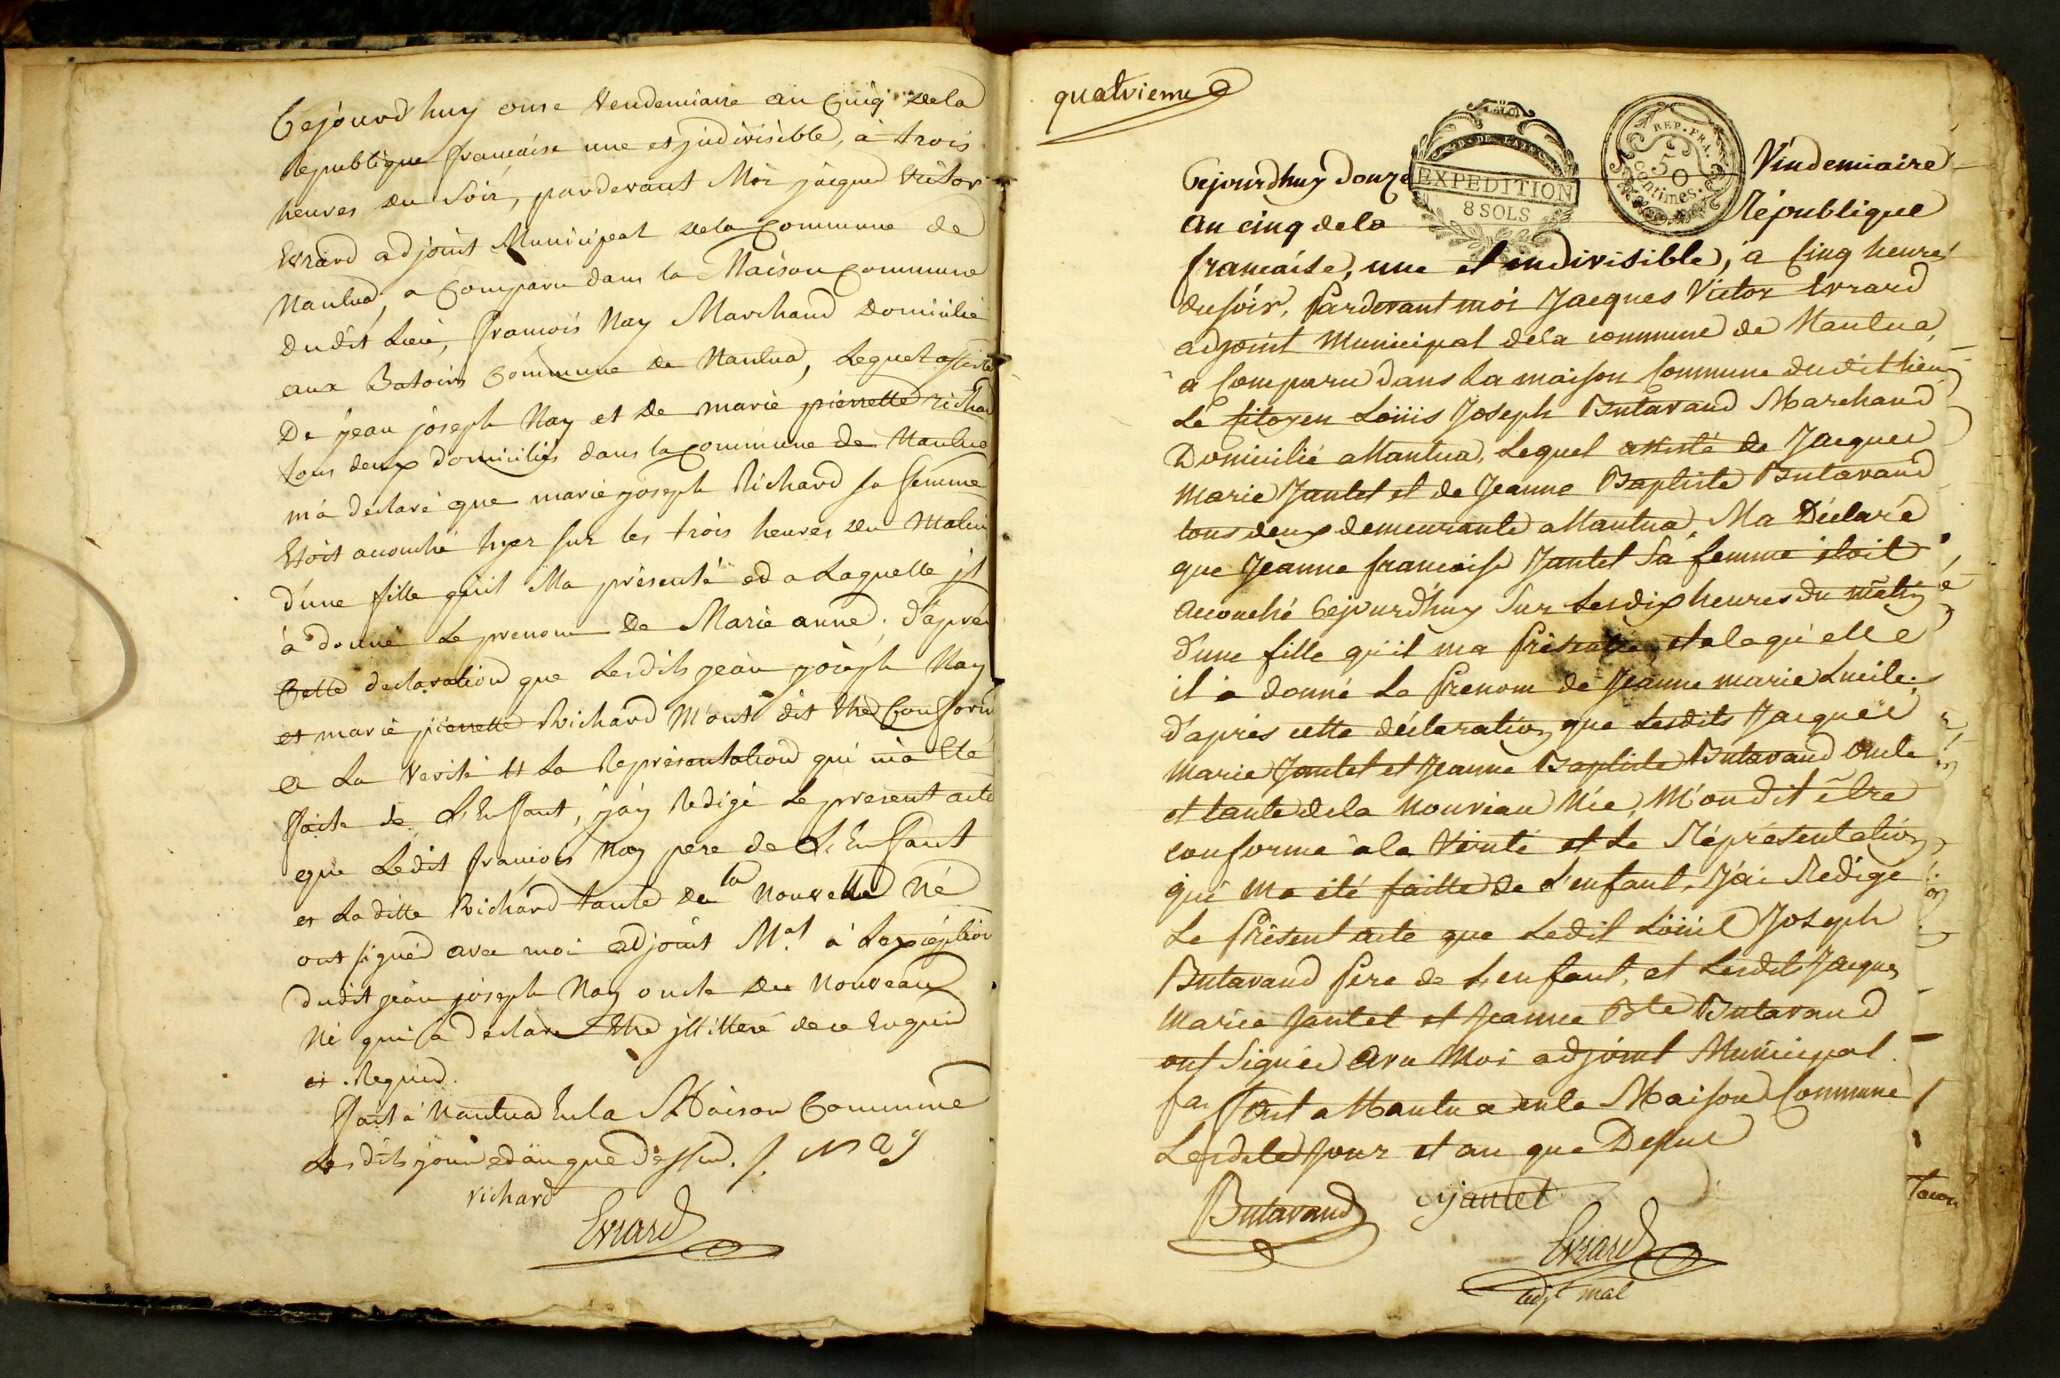 Cejourd'huy onse Vendemiaire an Cinq de la
Republique francaise une et jndivisible, à trois
heures du Soir, pardevant Moi jacques Victor
Evrard adjoint Municipal de la Commune de
Nantua, a Comparu dans la Maison Commune
dudit Lieu, francois Nay Marchand Domicilié
aux Batoirs Commune de Nantua, Lequel assisté
De jean joseph Nay et de marie pierrette richard
tous deux domiciliés dans la commune de Nantua
m'a declaré que marie joseph Richard sa femme
Etoit accouché hyer sur les trois heures du Matin
d'une fille qu'il Ma présenté ed a Laquelle jl
à donné Le prenom De Marie anne; d'après
Cette declaration que Lesdits jean joseph Nay
et marie pierrette Richard M'ont dit Etre Conforme
a La Verité et La Representation qui ma Eté
faite de L'Enfant, j'ay Redigé Le present acte
que Ledit francois Nay pere de L'Enfant
et Laditte Richard tante de la Nouvelle Né
ont signéd avec moi adjoint M.al à Lexception
dudit jean joseph Nay oncle du Nouveau
Né qui a declaré Etre jllitteré de ce Enquis
et Requis.
fait à Nantua En la Maison Commune
Lesdits jour ed an que Dessus. f. Nay
richard
Evrard
quatrieme
EXPEDITION
8 SOLS
REP. FRA.
50
Centimes.
Cejourdhuy douze Vindemiaire
an cinq de la République
francaise, une et indivisible, à Cinq heure
du soir, Pardevant moi Jacques Victor Evrard
adjoint Municipal de la commune de Nantua,
a Comparu dans La maison Commune dudit lieu
Le Citoyen Loüis Joseph Butavand Marchand
Domicilié a Nantua, Lequel assisté de Jacques
Marie Jantet et de Jeanne Baptiste Butavand
tous deux demeurants a Nantua, Ma Déclaré
que Jeanne francoise Jantet Sa femme étoit
accouché Cejourd'huy Sur Les dix heures du matin
d'une fille qu'il ma Présentée et a laqu'elle
il à donné Le Prenom de Jeanne marie Lucile;
d'après cette déclaration que Lesdits Jacques
Marie Jantet et Jeanne Baptiste Butavand oncle
et tante de la Nouveau Née, M'on dit être
conforme à la Vérité et La Représentation
qui ma été faitte de L'enfant, J'ai Rédigé
Le Présent acte que Ledit Loüis Joseph
Butavand Pere de L'enfant, et Lesdits Jacques
Marie Jantet et Jeanne Bte Butavand
ont Signés avec Moi adjoint Municipal.
fai fait a Nantua en la Maison Commune
Lesdits Jour et an que Dessus
Butavand Jantet
Evrard
adjt mal